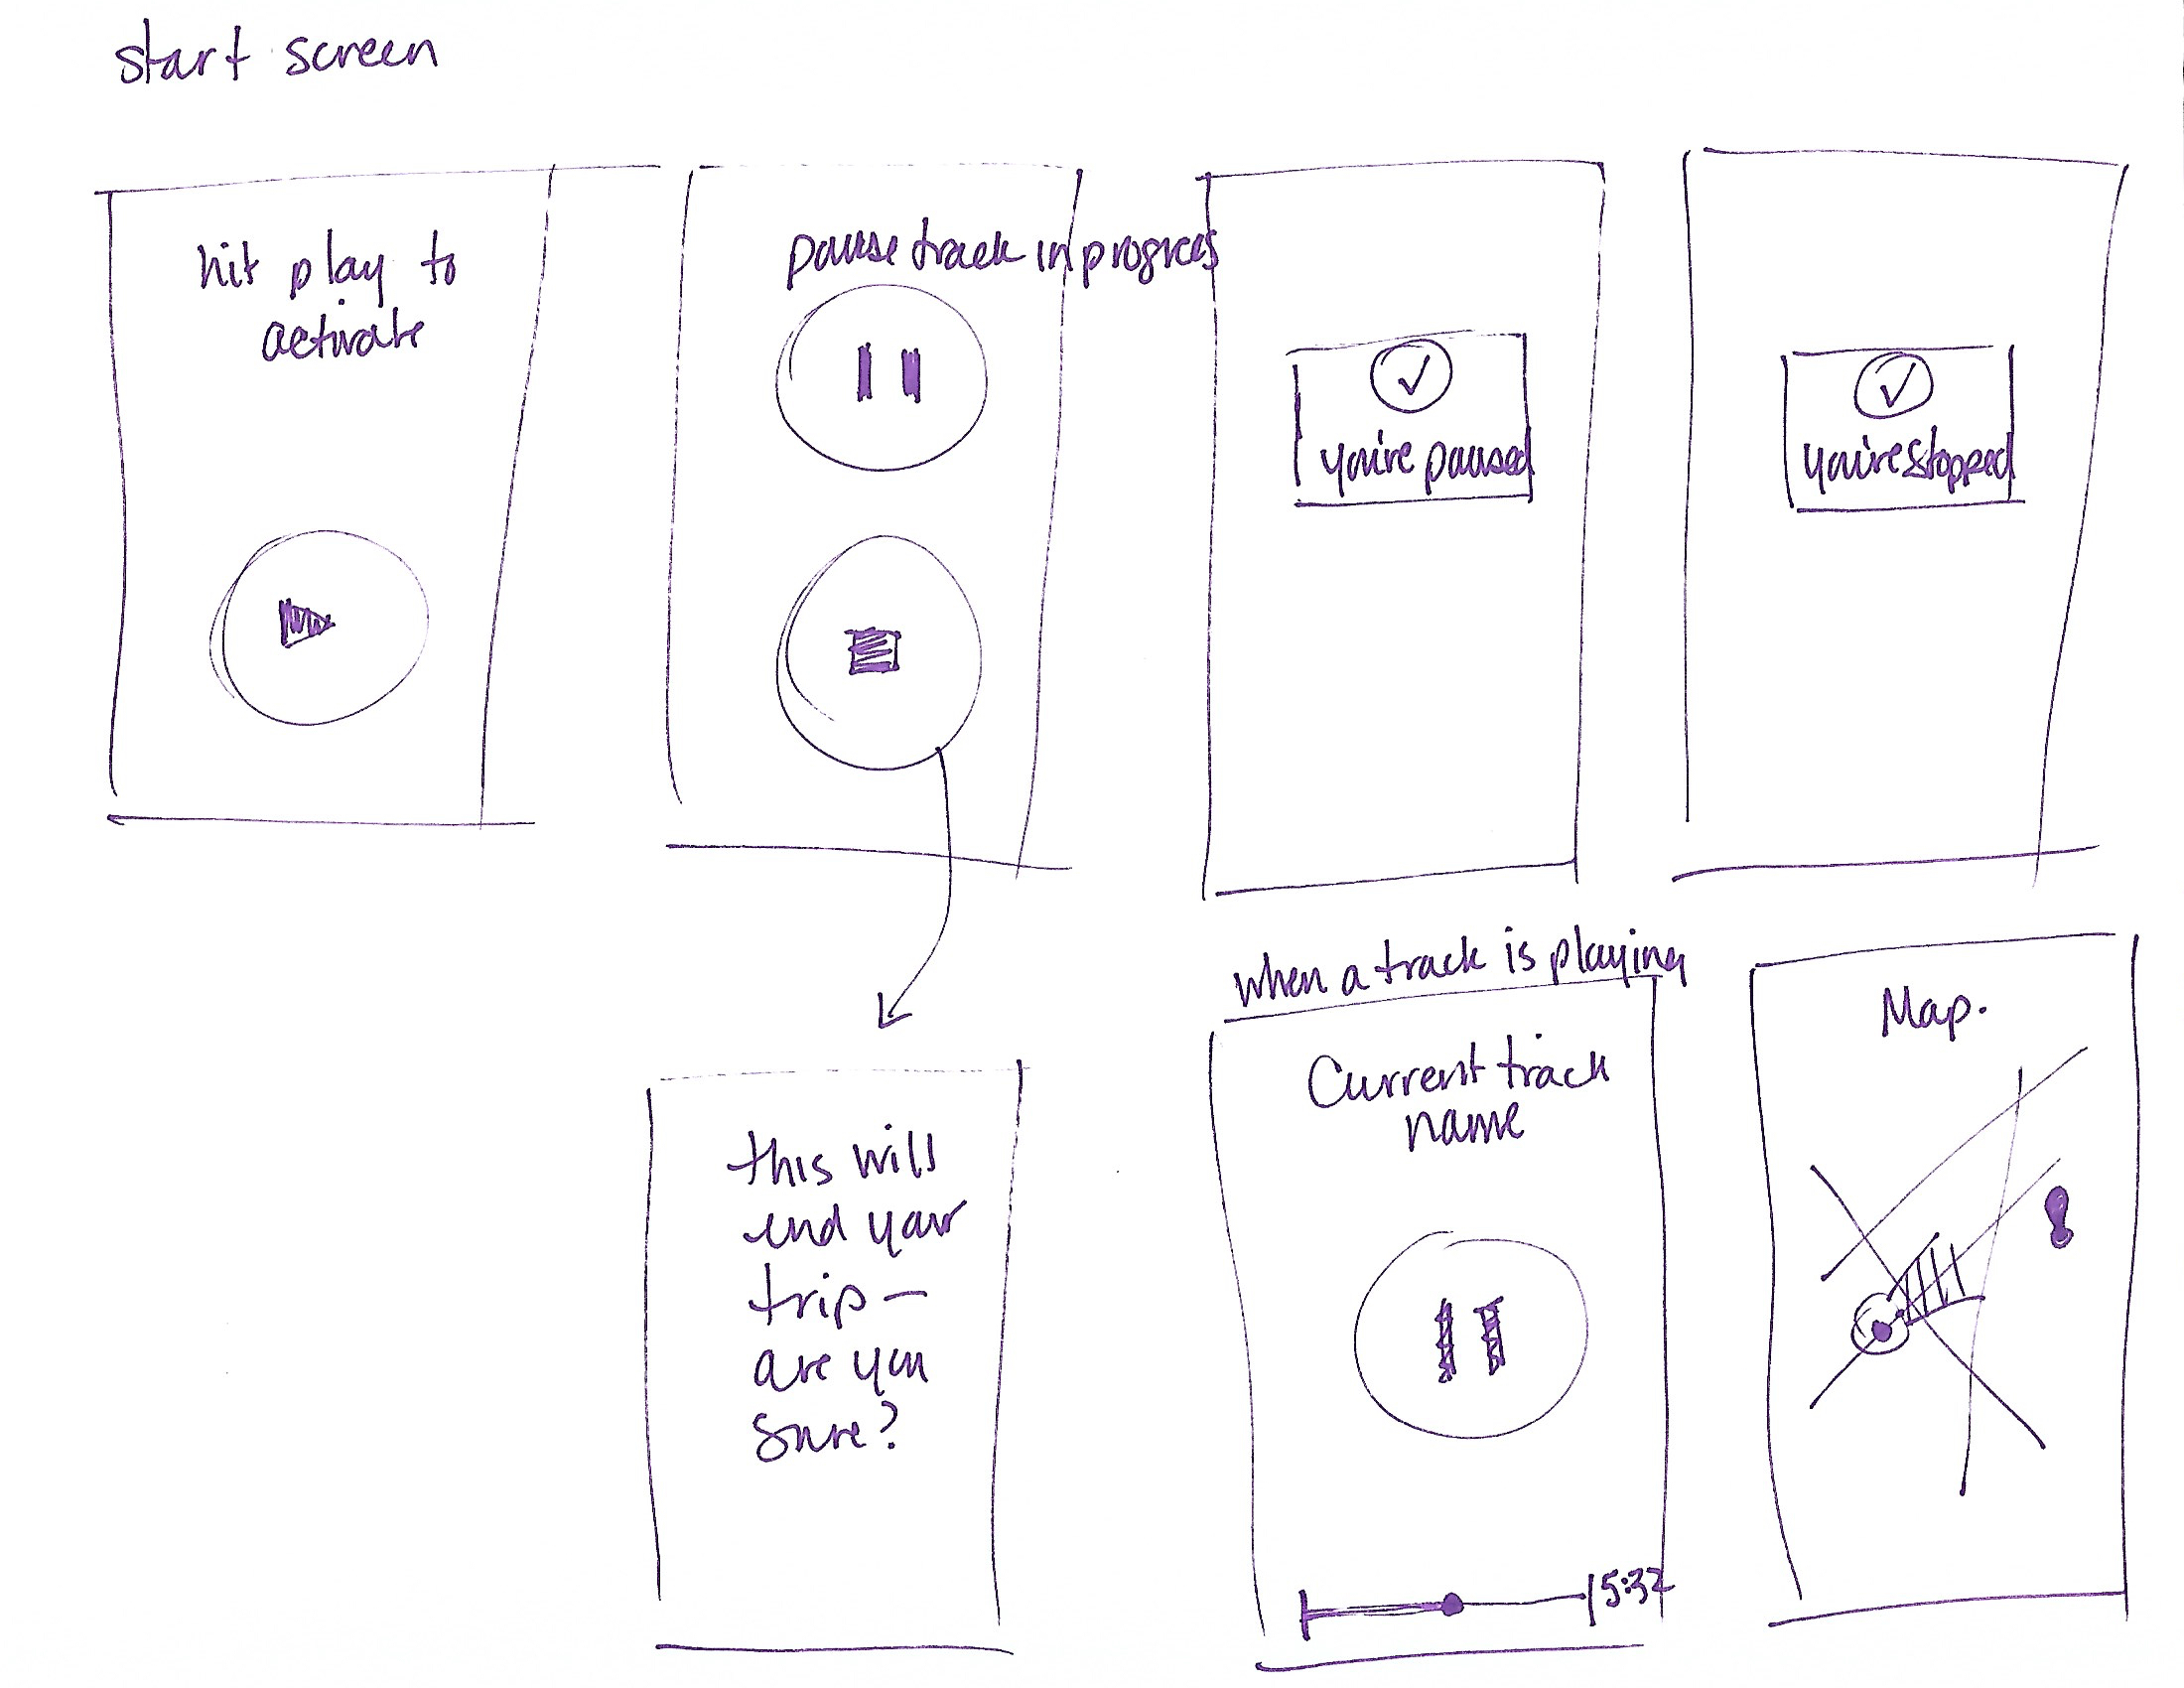 start screen
hit play to
activate
pause track in progress
you're paused
you're stopped
this will
end your
trip –
are you
sure?
when a track is playing
Current track
name
5:32
Map.